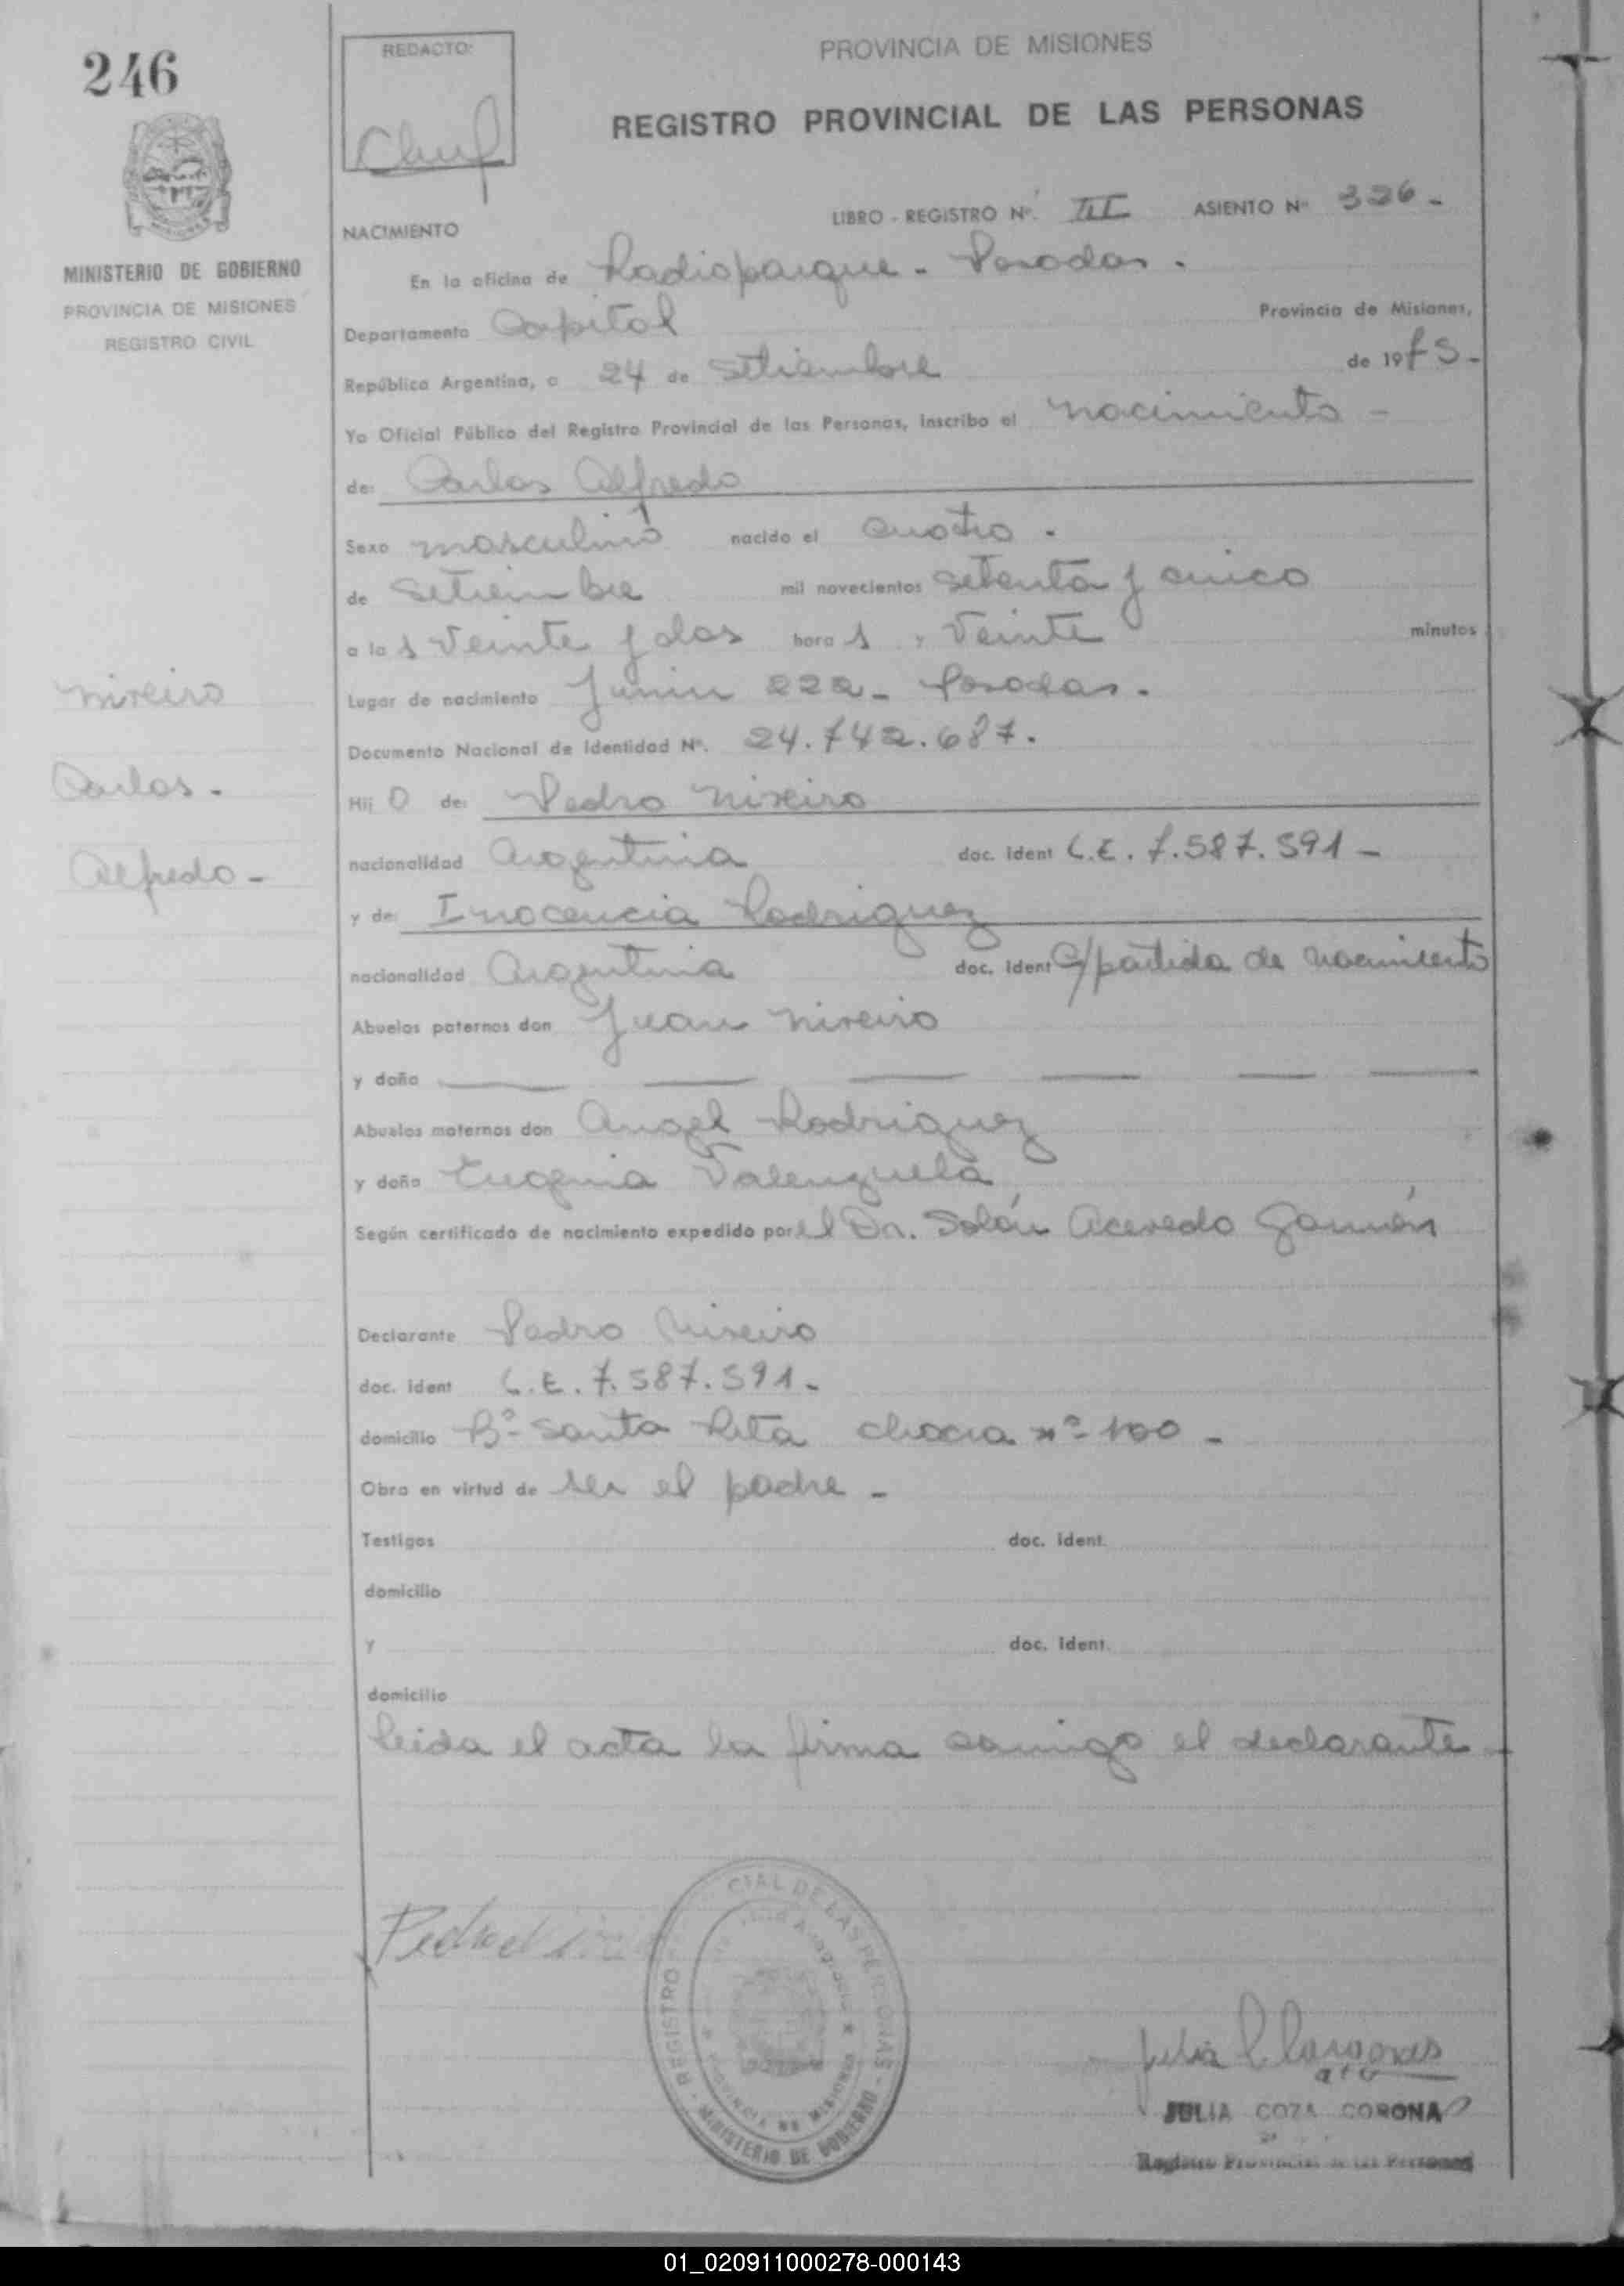 246
REDACTO:
PROVINCIA DE MISIONES
REGISTRO PROVINCIAL DE LAS PERSONAS
LIBRO - REGISTRO Nº. III ASIENTO Nº 326 -
NACIMIENTO
MINISTERIO DE GOBIERNO
PROVINCIA DE MISIONES
REGISTRO CIVIL
En la oficina de Radioparque - Posadas .
Departamento Capital Provincia de Misiones,
República Argentina, a 24 de Setiembre de 1975 -
Yo Oficial Público del Registro Provincial de las Personas, inscribo el nacimiento -
de: Carlos Alfredo
Sexo masculino nacido el cuatro .
de Setiembre mil novecientos setenta y cinco
a la s veinte y dos hora s y veinte minutos
Lugar de nacimiento Junin 222 - Posadas .
Documento Nacional de Identidad Nº. 24.742.687.
Hij o de: Pedro Nireiro
nacionalidad Argentina doc. ident L.E. 7.587.591 -
y de: Inocencia Rodriguez
nacionalidad Argentina doc. ident C/partida de nacimiento
Abuelos paternos don Juan Nireiro
y doña
Abuelos maternos don Angel Rodriguez
y doña Eugenia Valenzuela
Según certificado de nacimiento expedido por el Dr. Solón Acevedo
Declarante Pedro Nireiro
doc. ident L.E. 7.587.591 -
domicilio Bº Santa Rita chacra nº 100 -
Obra en virtud de ser el padre -
Testigos doc. ident.
domicilio
y doc. ident.
domicilio
leida el acta la firma conmigo el declarante
Nireiro
Carlos .
Alfredo -
Pedro
REGISTRO CIAL DE LAS PERSONAS - MINISTERIO DE GOBIERNO
PROVINCIA DE MISIONES
JULIA COZA CORONA
Registro Provincial de las Personas
01_020911000278-000143